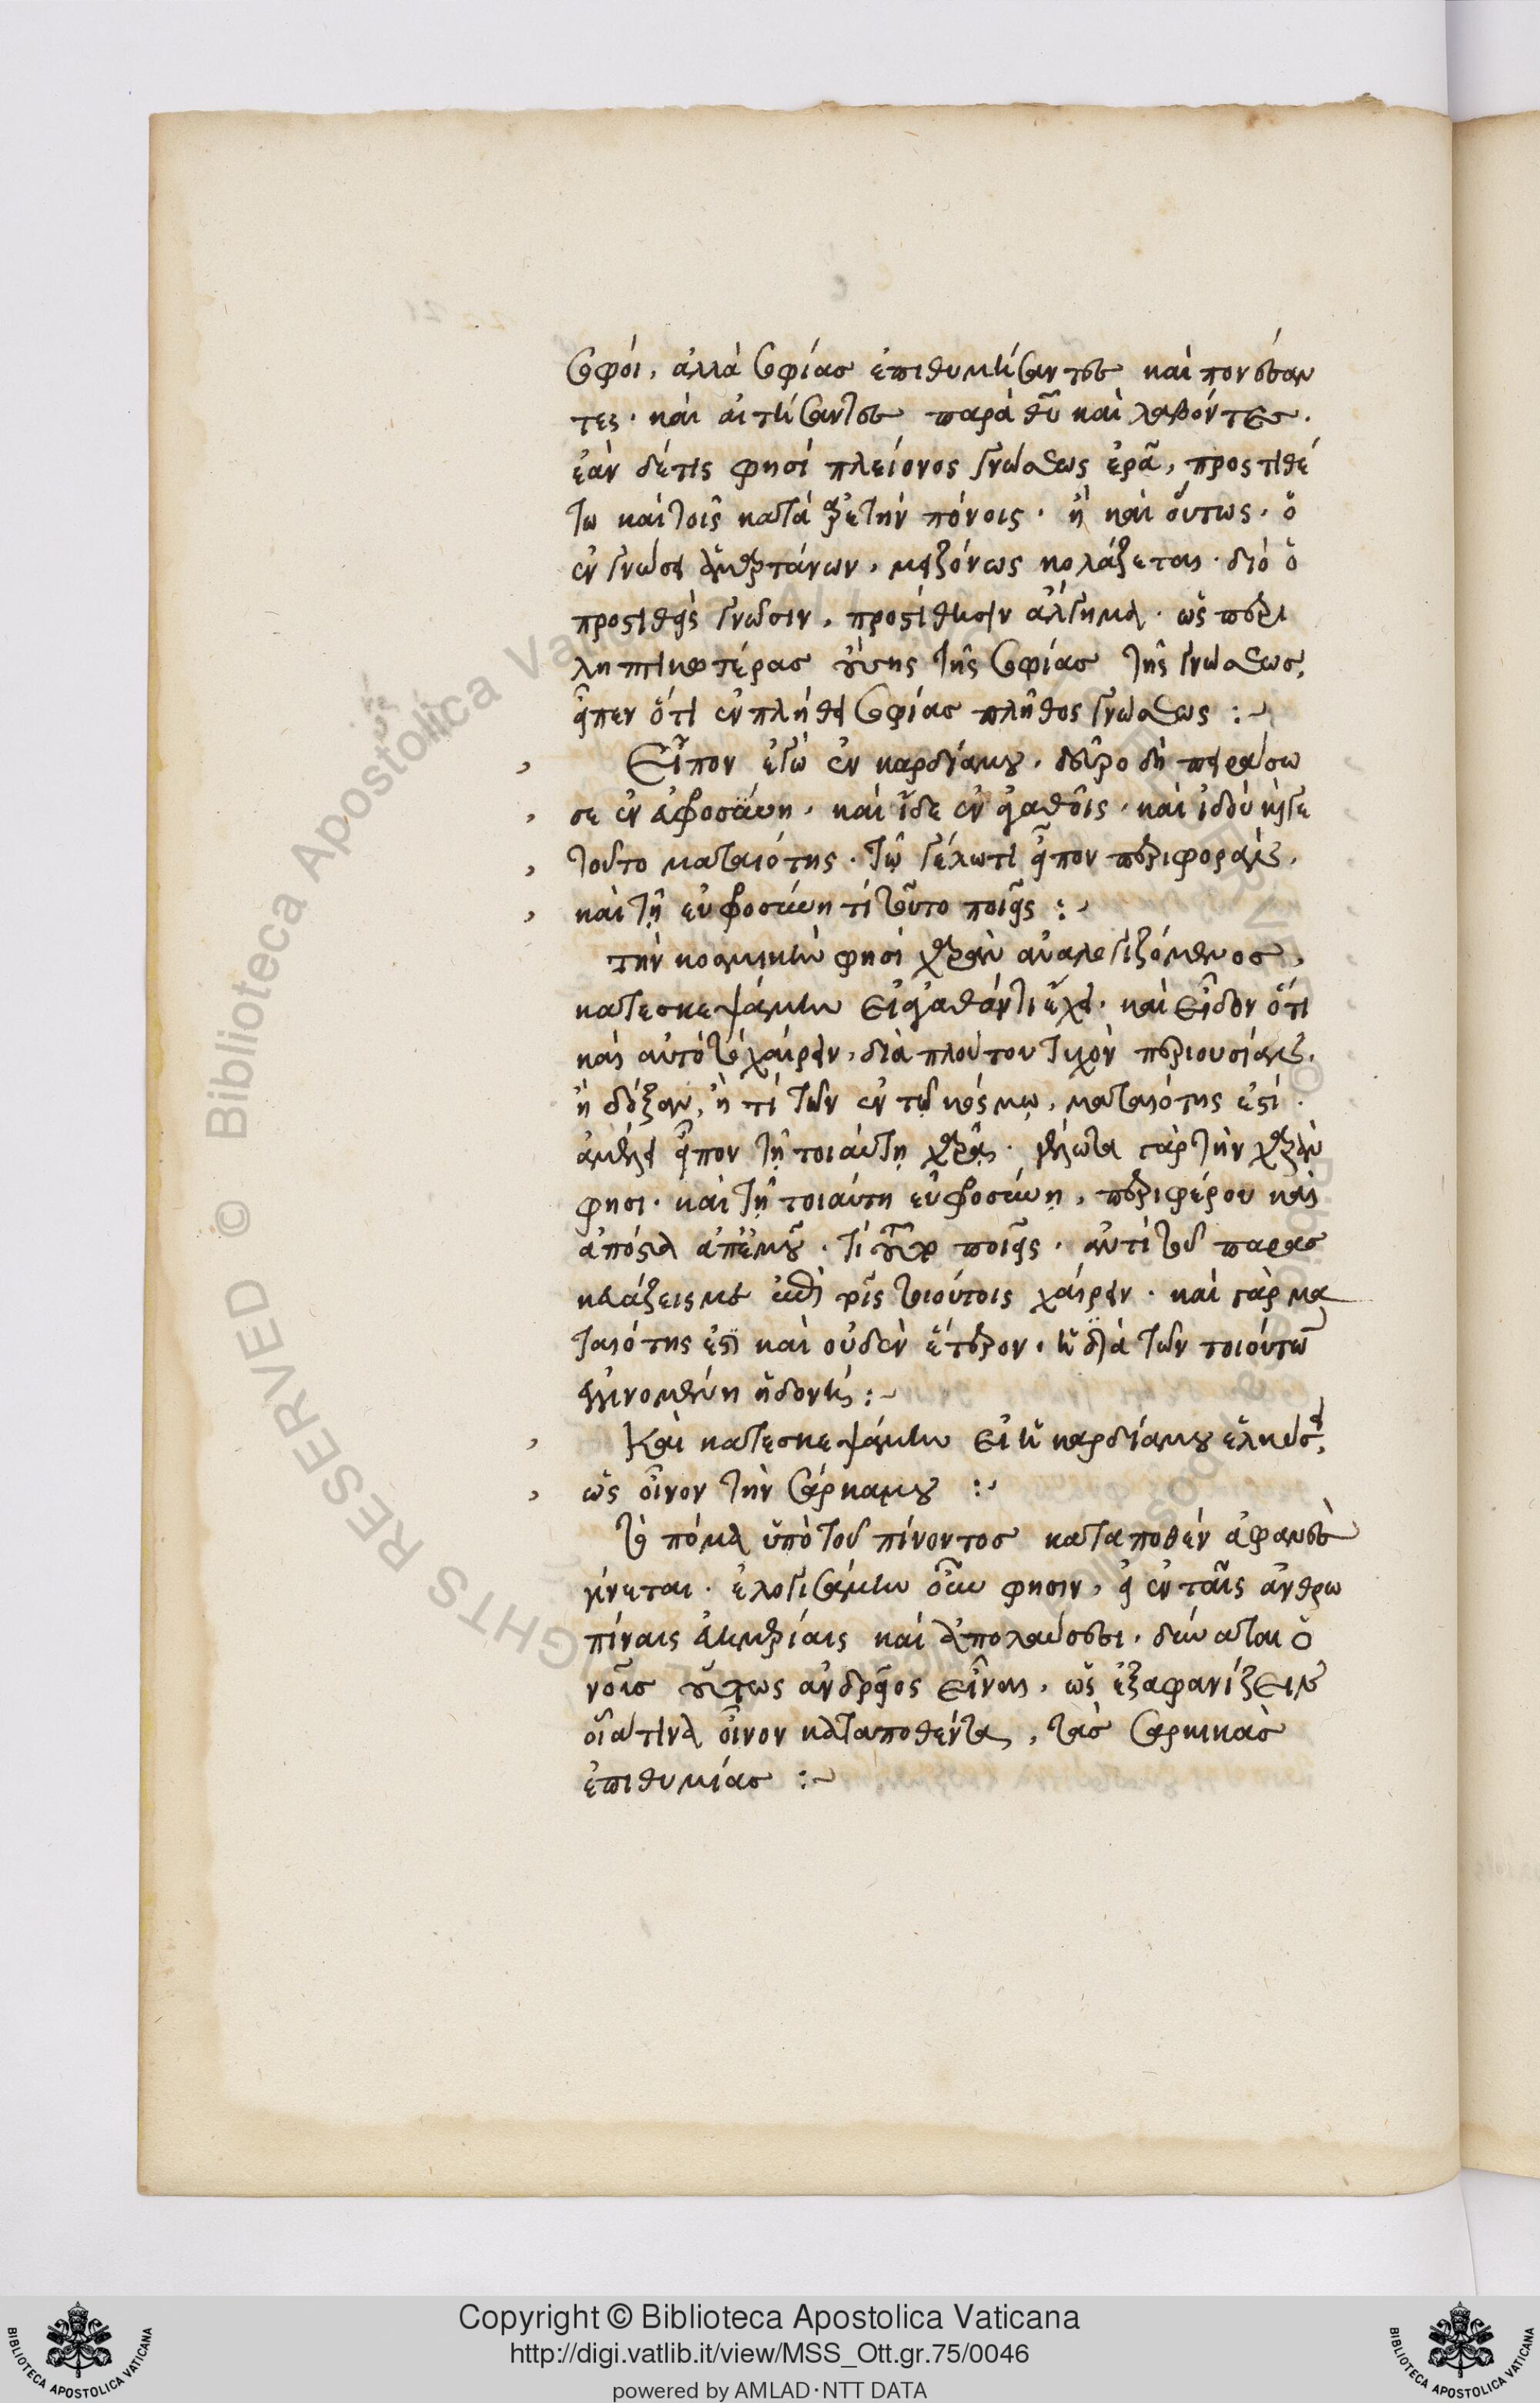 σοφοί, ἀλλὰ σοφίας ἐπιθυμήσαντες καὶ πονέσαν
τες· καὶ αἰτήσαντες παρὰ θυ καὶ λαβόντες.
ἐὰν δέ τις φησὶ πλείονος γνώσεως ἐρᾶ, προστιθέ
τω καὶ τοῖς κατὰ ἀρετὴν πόνοις· ἢ καὶ οὕτως· ὁ
ἐν γνώσει ἁμαρτάνων, μειζόνως κολάζεται· διὸ ὁ
προστιθεὶς γνῶσιν, προστίθησιν ἄλγημα· ὡς περι
ληπτικωτέρας οὔσης τῆς σοφίας τῆς γνώσεως,
εἶπεν ὅτι ἐν πλήθει σοφίας πλῆθος γνώσεως :~
Εἶπον ἐγὼ ἐν καρδία μου, δεῦρο δὴ πειράσω
σε ἐν εὐφροσύνη, καὶ ἴδε ἐν ἀγαθοῖς, καὶ ἰδοὺ καί γε
τοῦτο ματαιότης· τῷ γέλωτι εἶπον περιφοράν,
καὶ τῇ εὐφροσύνη τί τοῦτο ποιεῖς :~
τὴν κοσμικὴν φησὶ χαρὰν ἀναλογιζόμενος,
κατεσκεψάμην εἰ ἀγαθόν τι ἔχει· καὶ εἶδον ὅτι
καὶ αὐτὸ τὸ χαίρειν, διὰ πλοῦτον τυχὸν περιουσίαν,
ἢ δόξαν, ἤ τι τῶν ἐν τῷ κόσμῳ, ματαιότης ἐστί·
ἀμέλει εἶπον τῇ τοιαύτῃ χαρᾷ· γέλωτα γὰρ τὴν χαρὰν
φησι· καὶ τῇ τοιαύτη εὐφροσύνῃ, περιφέρου καὶ
ἀπόστα ἀπ' ἐμοῦ· τί γὰρ ποιεῖς· ἀντὶ τοῦ παρασ
κευάζεις με ἐπὶ τοῖς τοιούτοις χαίρειν· καὶ γὰρ μα
ταιότης ἐστὶ καὶ οὐδὲν ἕτερον, ἡ διὰ τῶν τοιούτων
γινομένη ἡδονή :~
Καὶ κατεσκεψάμην εἰ ἡ καρδία μου ἑλκύσει,
ὡς οἶνον τὴν σάρκα μου :~
Τὸ πόμα ὑπὸ τοῦ πίνοντος καταποθὲν ἀφανὲς
γίνεται· ἐλογισάμην οὖν φησιν, εἰ ἐν ταῖς ἀνθρω
πίναις εὐημερίαις καὶ ἀπολαύσεσι, δύναται ὁ
νοῦς οὕτως ἀνδρεῖος εἶναι, ὡς ἐξαφανίζειν
οἷά τινα οἶνον καταποθέντα, τὰς σαρκικὰς
ἐπιθυμίας :~
Copyright © Biblioteca Apostolica Vaticana
http://digi.vatlib.it/view/MSS_Ott.gr.75/0046
powered by AMLAD·NTT DATA